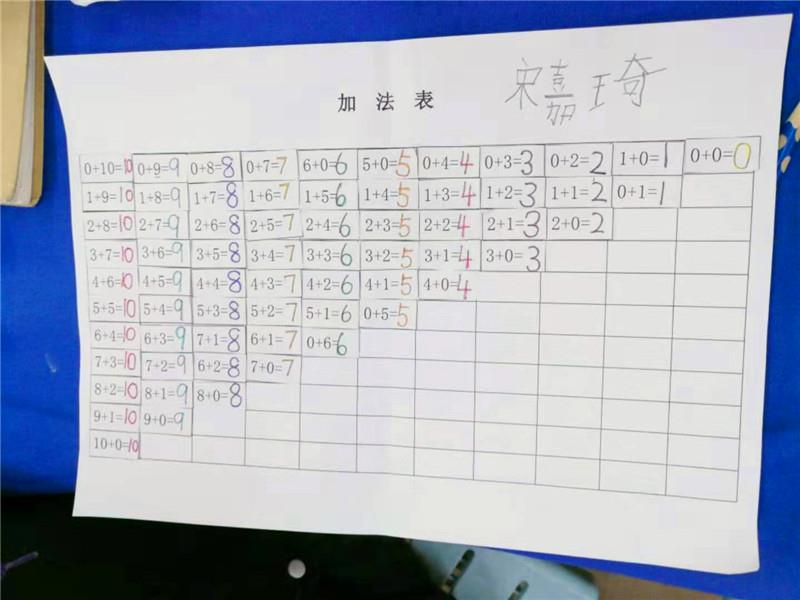 宋嘉琦
加法表
0+10=10 0+9=9 0+8=8 0+7=7 6+0=6 5+0=5 0+4=4 0+3=3 0+2=2 1+0=1 0+0=0
1+9=10 1+8=9 1+7=8 1+6=7 1+5=6 1+4=5 1+3=4 1+2=3 1+1=2 0+1=1
2+8=10 2+7=9 2+6=8 2+5=7 2+4=6 2+3=5 2+2=4 2+1=3 2+0=2
3+7=10 3+6=9 3+5=8 3+4=7 3+3=6 3+2=5 3+1=4 3+0=3
4+6=10 4+5=9 4+4=8 4+3=7 4+2=6 4+1=5 4+0=4
5+5=10 5+4=9 5+3=8 5+2=7 5+1=6 0+5=5
6+4=10 6+3=9 7+1=8 6+1=7 0+6=6
7+3=10 7+2=9 6+2=8 7+0=7
8+2=10 8+1=9 8+0=8
9+1=10 9+0=9
10+0=10